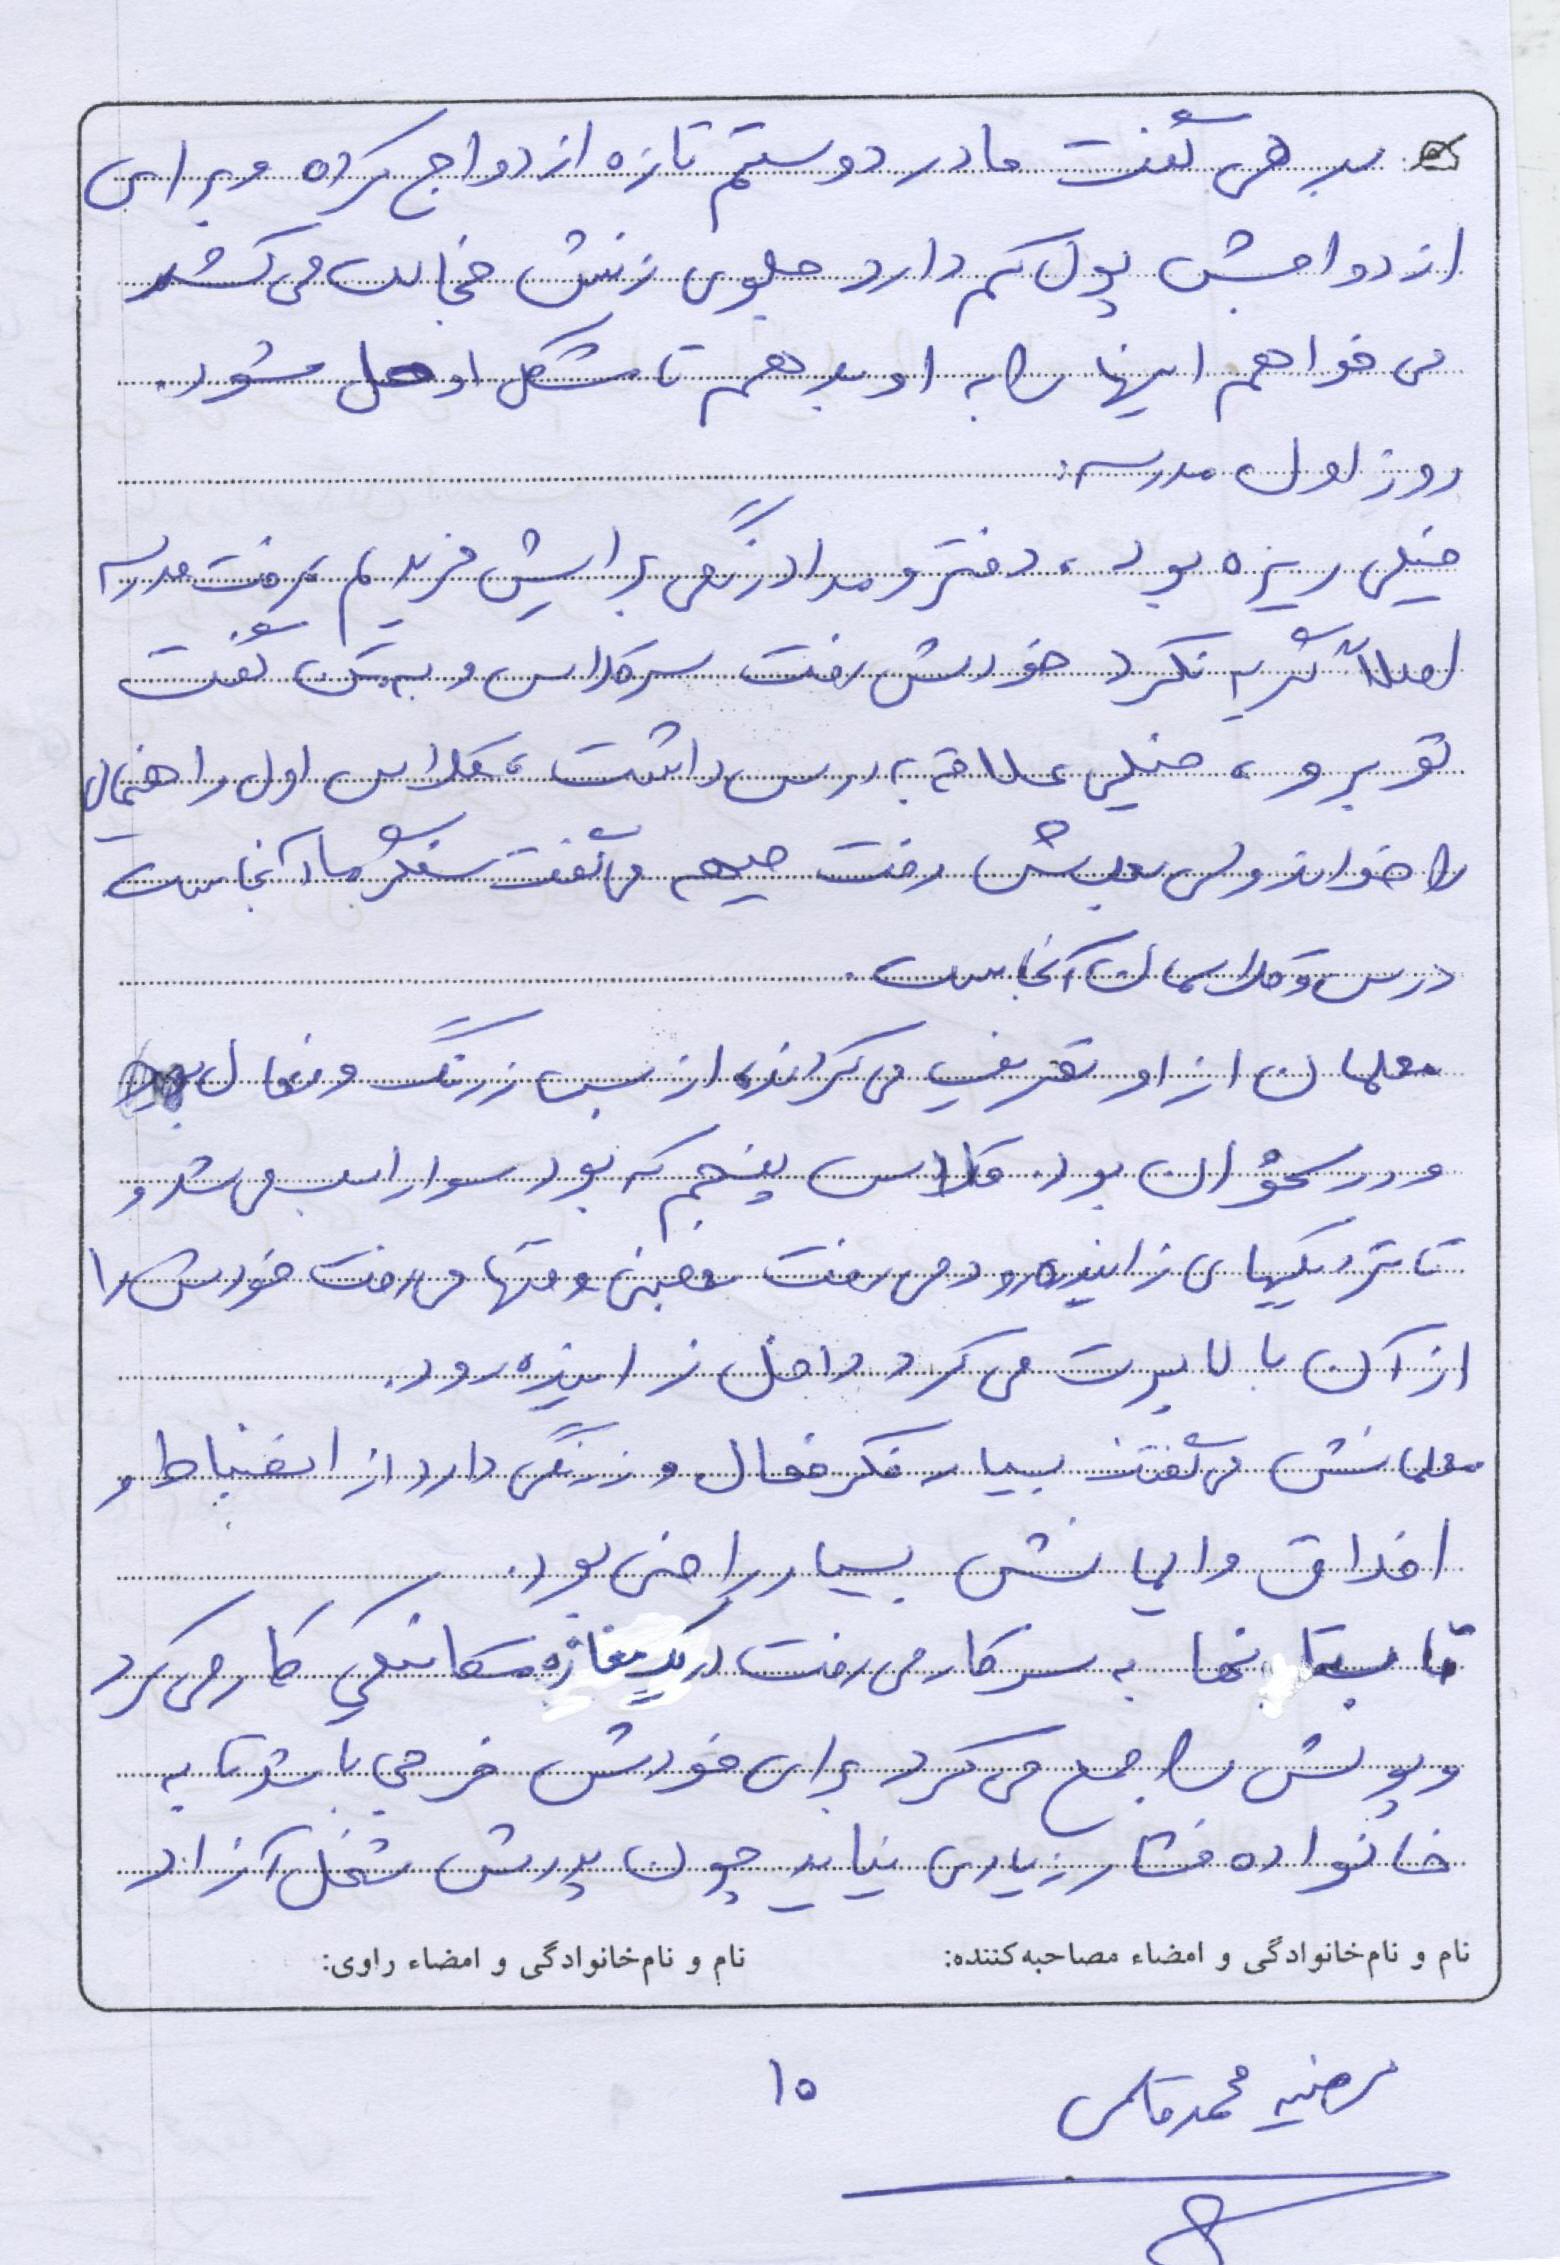 بدهی گفت مادر دوستم تازه ازدواج کرده و برای
ازدواجش پول کم دارد جلوی زنش خجالت می کشد
می خواهم اینها را به او بدهم تا مشکل او حل شود.
روز اول مدرسه:
خیلی ریزه بود، دفتر و مداد رنگی برایش خریدیم، رفت مدرسه
اصلاً گریه نکرد خودش رفت سر کلاس و به من گفت
تو برو، خیلی علاقه به درس داشت، کلاس اول راهنمایی
را خواند ولی بعدش رفت جبهه می گفت سنگر ما آنجاست
درس و کلاسمان آنجاست.
معلمان از او تعریف می کردند، از بس زرنگ و فعال بود
و درسخوان بود. کلاس پنجم که بود سوار اسب می شد و
تا نزدیکیهای زاینده رود می رفت بعضی وقتها می رفت خودش را
از آن بالا پرت می کرد داخل زاینده رود.
معلمانش می گفتند بسیار فکر فعال و زرنگی دارد از انضباط و
اخلاق و ایمانش بسیار راضی بود.
تابستانها به سر کار می رفت در یک مغازه مکانیکی کار می کرد
و پولش را جمع می کرد برای خودش خرجی باشد تا به
خانواده فشار زیادی نیاید چون پدرش شغل آزاد
نام و نام خانوادگی و امضاء مصاحبه کننده: نام و نام خانوادگی و امضاء راوی:
مرضیه محمدقاسمی ۱۵